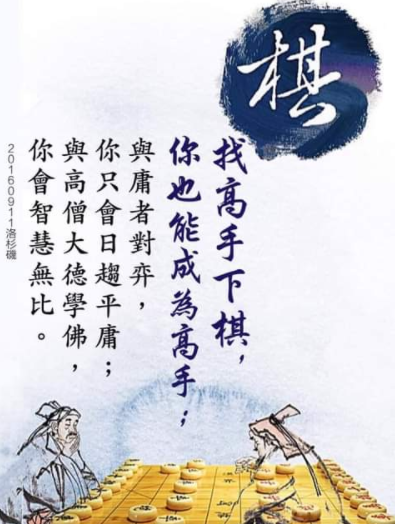 棋
找高手下棋，
你也能成為高手；
與庸者對弈，
你只會日趨平庸；
與高僧大德學佛，
你會智慧無比。
20160911洛杉磯